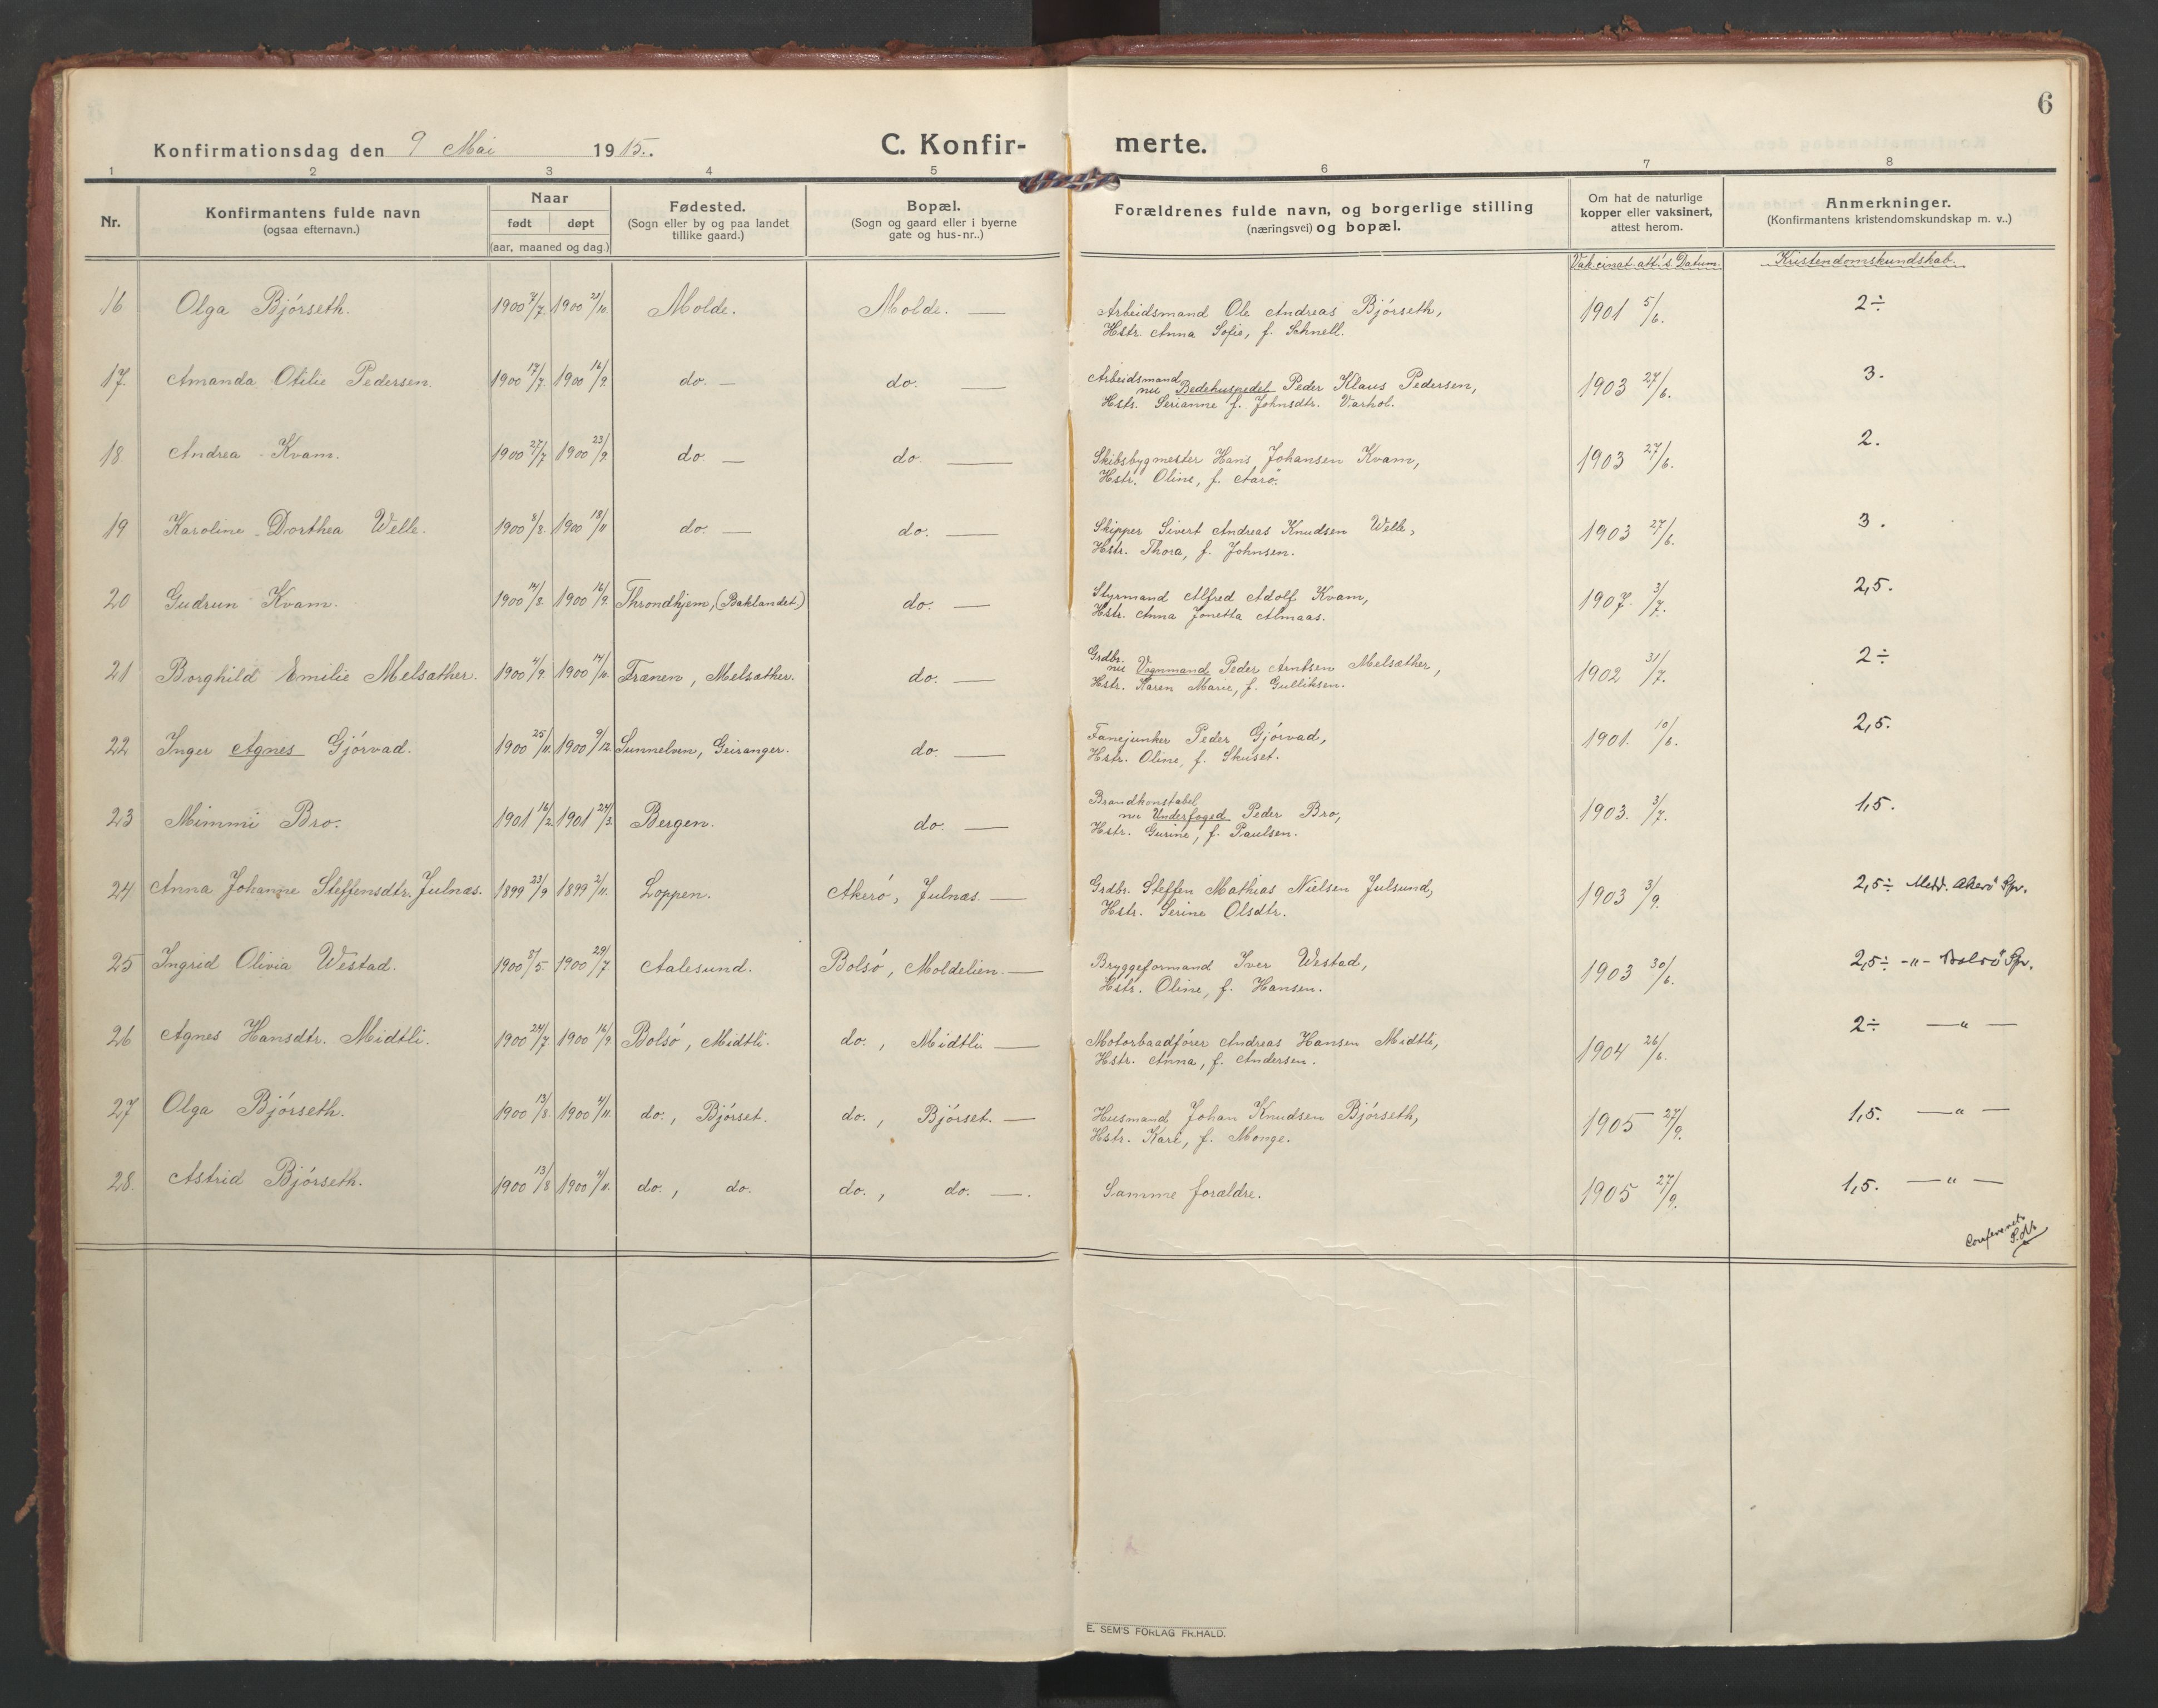 6
Konfirmationsdag den 9 Mai 1915.
C. Konfir- merte.
1 2 3 4 5 6 7 8
Nr.
Konfirmantens fulde navn
(ogsaa efternavn.)
Naar
født døpt
(aar, maaned og dag.)
Fødested.
(Sogn eller by og paa landet
tillike gaard.)
Bopæl.
(Sogn og gaard eller i byerne
gate og hus-nr..)
Forældrenes fulde navn, og borgerlige stilling
(næringsvei) og bopæl.
Om hat de naturlige
kopper eller vaksinert,
attest herom.
Anmerkninger.
(Konfirmantens kristendomskundskap m. v..)
Vakcinat. att.'s Datum. Kristendomskundskab.
16 Olga Bjórseth. 1900 7/7. 1900 21/10. Molde. Molde. — Arbeidsmand Ole Andreas Bjórseth, 1901 5/6. 2÷
Hstr. Anna Sofie, f. Schnell.
17. Amanda Otilie Pedersen. 1900 17/7. 1900 16/9. do. — do. — Arbeidsmand 1903 27/6. 3.
nu Bedehuspedel Peder Klaus Pedersen,
Hstr. Serianne f. Johnsdtr. Varhol.
18 Andrea Kvam. 1900 27/7 1900 23/9 do. — do. — Skibsbygmester Hans Johansen Kvam, 1903 27/6. 2.
Hstr. Oline, f. Aarø.
19 Karoline Dorthea Welle. 1900 8/8. 1900 18/11 do. — do. — Skipper Sivert Andreas Knudsen Welle, 1903 27/6. 3.
Hstr. Thora, f. Johnsen.
20 Gudrun Kvam. 1900 14/8. 1900 16/9. Throndhjem, (Baklandet.) do. — Styrmand Alfred Adolf Kvam, 1907. 3/7. 2,5.
Hstr. Anna Jonetta Almaas.
21 Borghild Emilie Melsæther. 1900 4/9. 1900 14/10. Frænen, Melsæther. do. — Grdbr. 1902 31/7. 2÷
nu Vognmand Peder Arntsen Melsæther,
Hstr. Karen Marie, f. Gulliksen.
22 Inger Agnes Gjórvad. 1900 25/11. 1900 9/12. Sunnelven, Geiranger. do — Fanejunker Peder Gjórvad, 1901. 10/6. 2,5.
Hstr. Oline, f. Skuset.
23 Mimmi Bro. 1901 16/2. 1901 24/3. Bergen. do. — Brandkonstabel 1903. 3/7. 1,5.
nu Underfoged Peder Bro,
Hstr. Gurine, f. Paulsen.
24 Anna Johanne Steffensdtr. Julnæs. 1899 23/9 1899 2/11. Loppen. Akerø, Julnæs. — Grdbr. Steffen Mathias Nielsen Julsund, 1903 3/9. 2,5÷ Medd. Akerø Spr.
Hstr. Serine Olsdtr.
25 Ingrid Olivia Westad. 1900 8/5. 1900 29/7. Aalesund. Bolsø, Moldelien. — Bryggeformand Iver Westad, 1903 30/6. 2,5÷ -"- Bolsø Spr.
Hstr. Oline, f. Hansen.
26 Agnes Hansdtr. Midtli. 1900 24/7 1900 16/9 Bolsó, Midtli. do., Midtli — Motorbaadfører Andreas Hansen Midtli, 1904 26/6. 2÷ — " —
Hstr. Anna, f. Andersen.
27 Olga Bjórseth. 1900 13/8. 1900 4/11. do., Bjórset. do., Bjórset. — Husmand Johan Knudsen Bjórseth, 1905 27/9. 1,5. — " —
Hstr. Kari, f. Monge.
28. Astrid Bjórseth. 1900 13/8 1900 4/11. do., do. do., do. —. Samme forældre. 1905 27/9. 1,5. — " —
Confereret
E. SEM'S FORLAG FR.HALD.